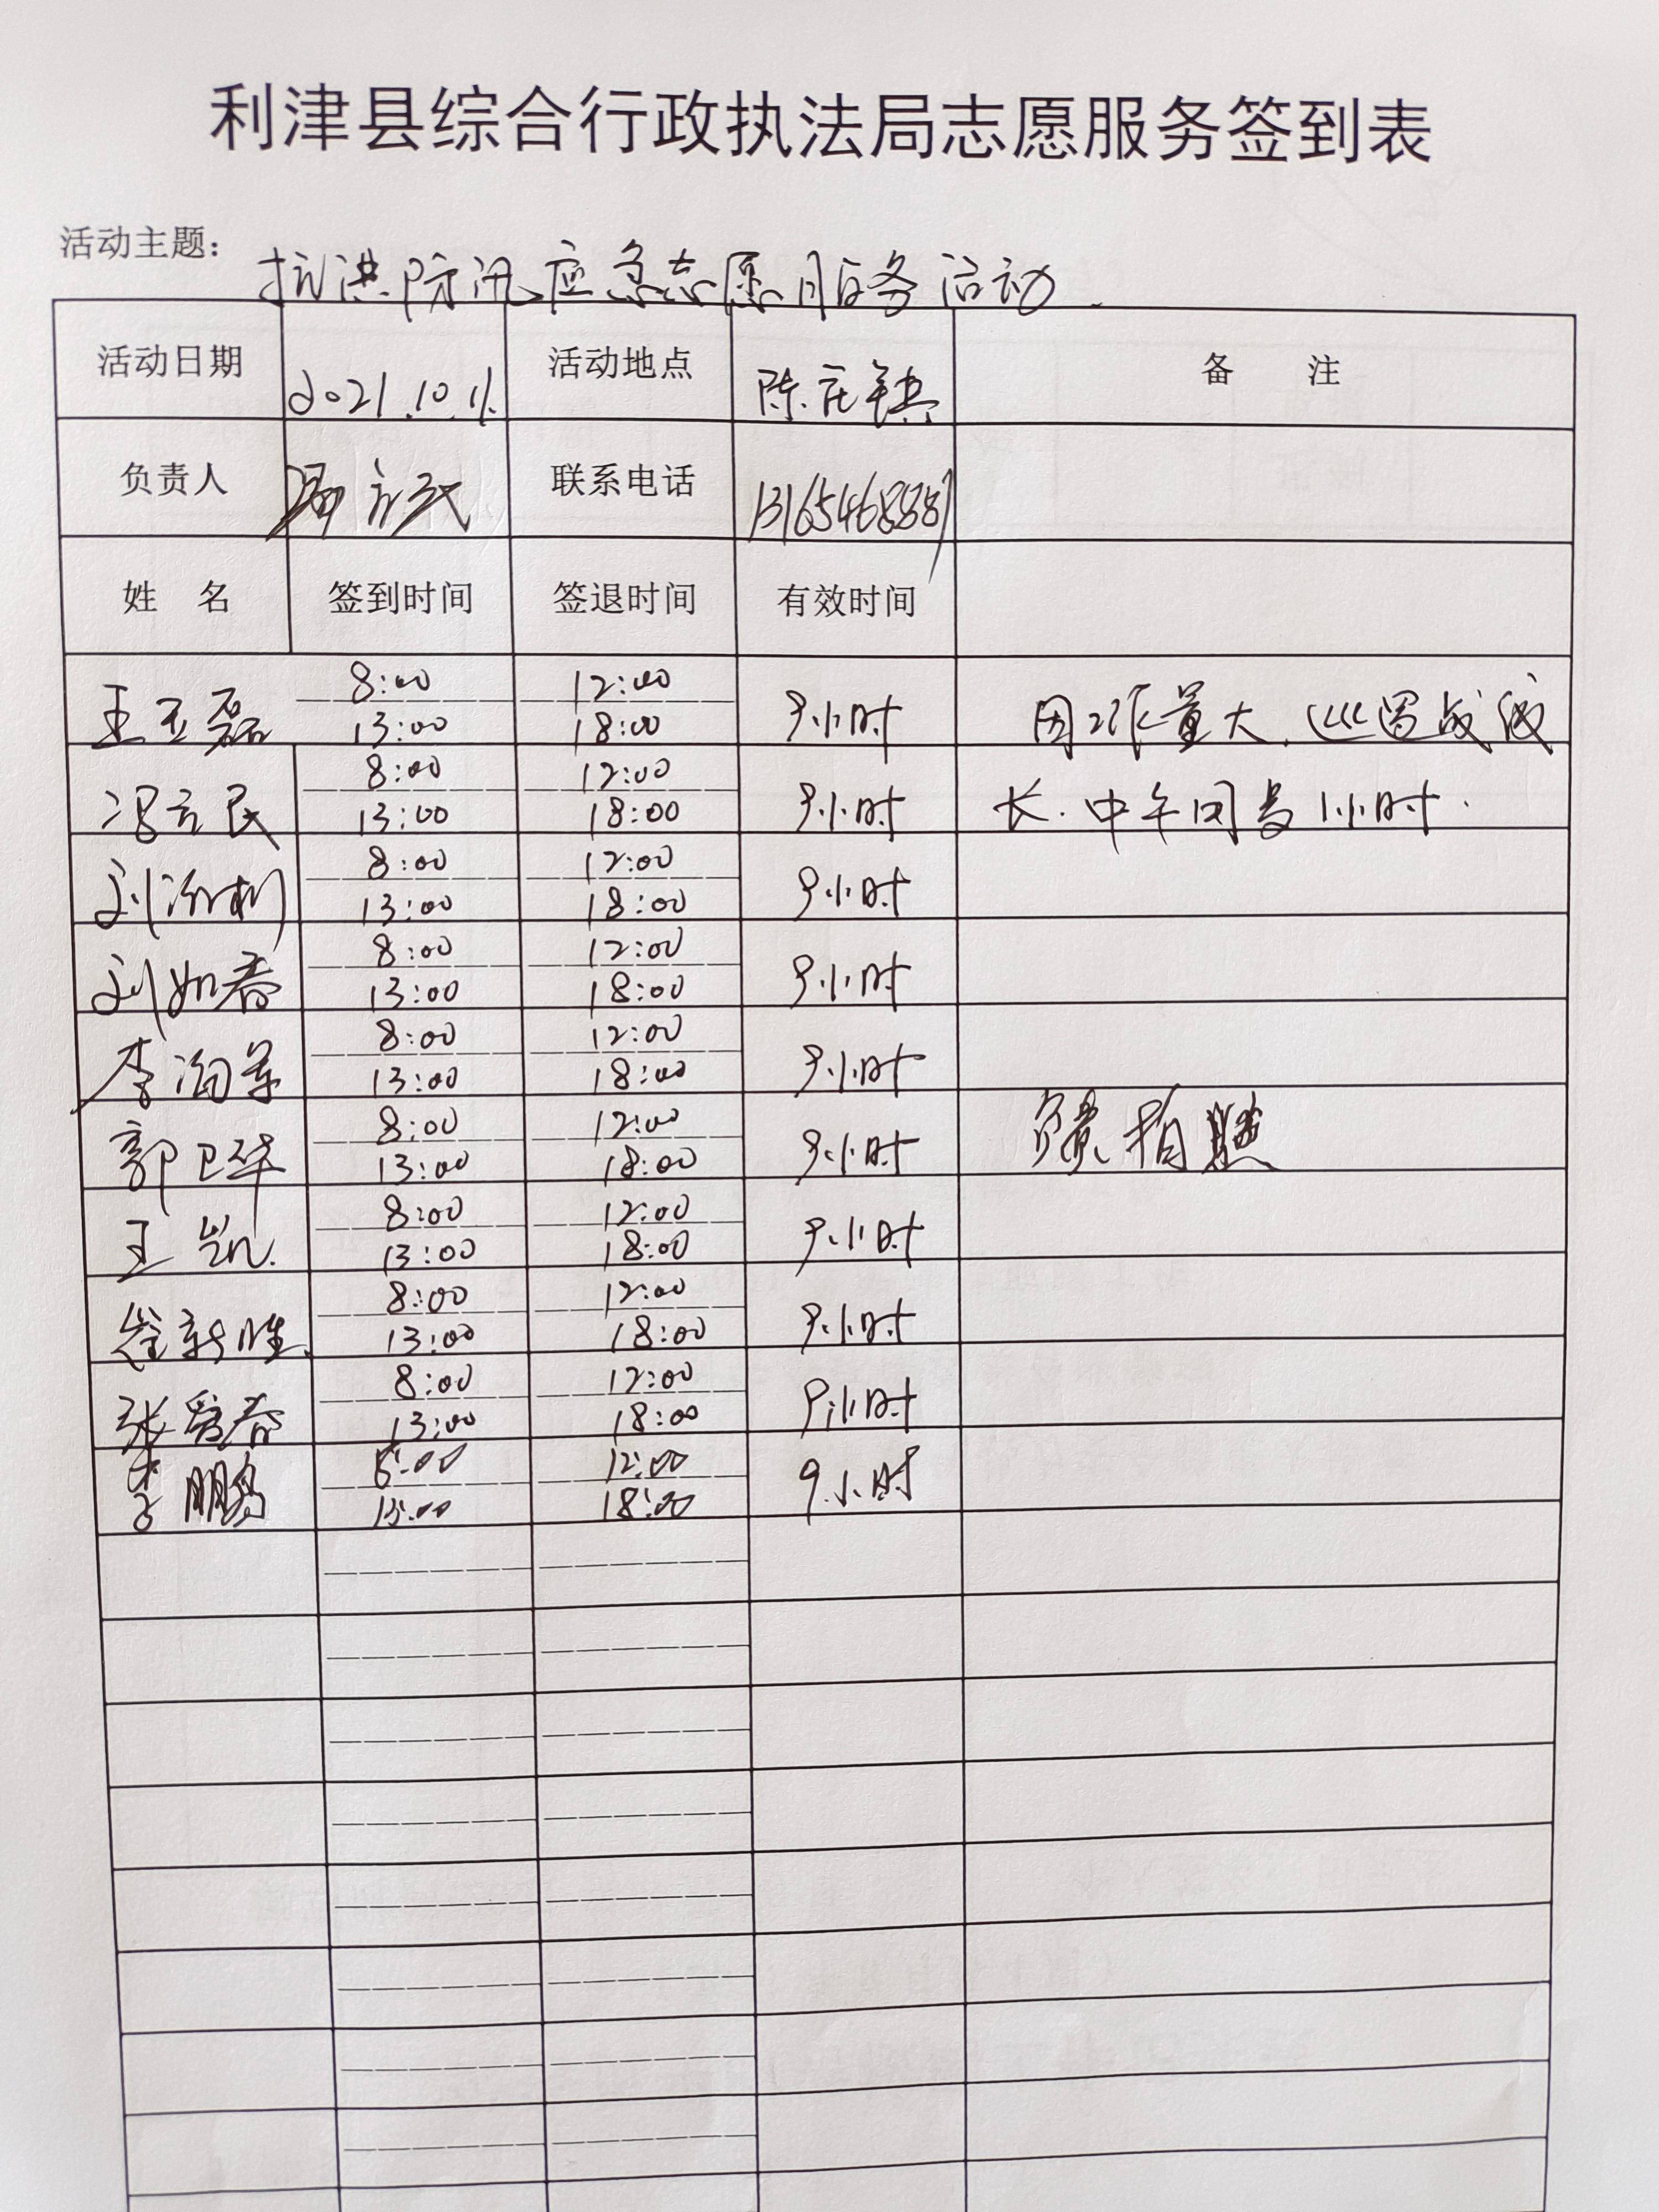 利津县综合行政执法局志愿服务签到表
活动主题: 抗洪防汛应急志愿服务活动.
活动日期 2021.10.11. 活动地点 陈庄镇 备 注
负责人 联系电话 13165468887
姓 名 签到时间 签退时间 有效时间
8:00 12:00
王玉磊 13:00 18:00 9小时 因工作量大, 巡逻战线
8:00 12:00
冯立民 13:00 18:00 9小时 长. 中午回岗1小时.
8:00 12:00
刘 13:00 18:00 9小时
8:00 12:00
刘如春 13:00 18:00 9小时
8:00 12:00
李 13:00 18:00 9小时
8:00 12:00
郭卫华 13:00 18:00 9小时 负责拍照
8:00 12:00
王凯. 13:00 18:00 9小时
8:00 12:00
崔新胜 13:00 18:00 9小时
8:00 12:00
张爱春 13:00 18:00 9小时
8:00 12:00
李鹏 13:00 18:00 9小时